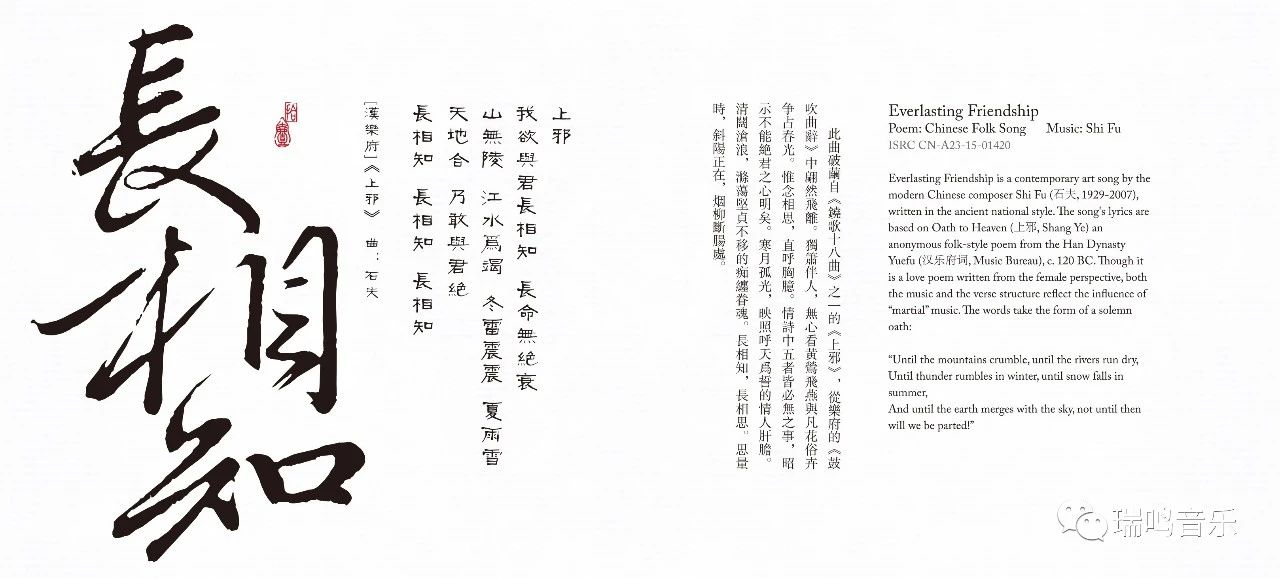 長相知
上邪
我欲與君長相知 長命無絕衰
山無陵 江水爲竭 冬雷震震 夏雨雪
天地合 乃敢與君絕
長相知 長相知 長相知
[漢樂府]《上邪》 曲:石夫
此曲破繭自《鐃歌十八曲》之一的《上邪》,從樂府的《鼓
吹曲辭》中翩然飛離。獨簫伴人,無心看黃鶯飛燕與凡花俗卉
争占春光。惟念相思,直呼胸臆。情詩中五者皆必無之事,昭
示不能絕君之心明矣。寒月孤光,映照呼天爲誓的情人肝膽。
清闊滄浪,滌蕩堅貞不移的痴纏眷魂。長相知,長相思。思量
時,斜陽正在,烟柳斷腸處。
Everlasting Friendship
Poem: Chinese Folk Song Music: Shi Fu
ISRC CN-A23-15-01420
Everlasting Friendship is a contemporary art song by the
modern Chinese composer Shi Fu (石夫, 1929-2007),
written in the ancient national style. The song's lyrics are
based on Oath to Heaven (上邪, Shang Ye) an
anonymous folk-style poem from the Han Dynasty
Yuefu (汉乐府词, Music Bureau), c. 120 BC. Though it
is a love poem written from the female perspective, both
the music and the verse structure reflect the influence of
“martial” music. The words take the form of a solemn
oath:
“Until the mountains crumble, until the rivers run dry,
Until thunder rumbles in winter, until snow falls in
summer,
And until the earth merges with the sky, not until then
will we be parted!”
瑞鸣音乐